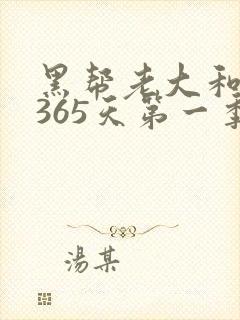 黑帮老大和
365天第一季
湯某